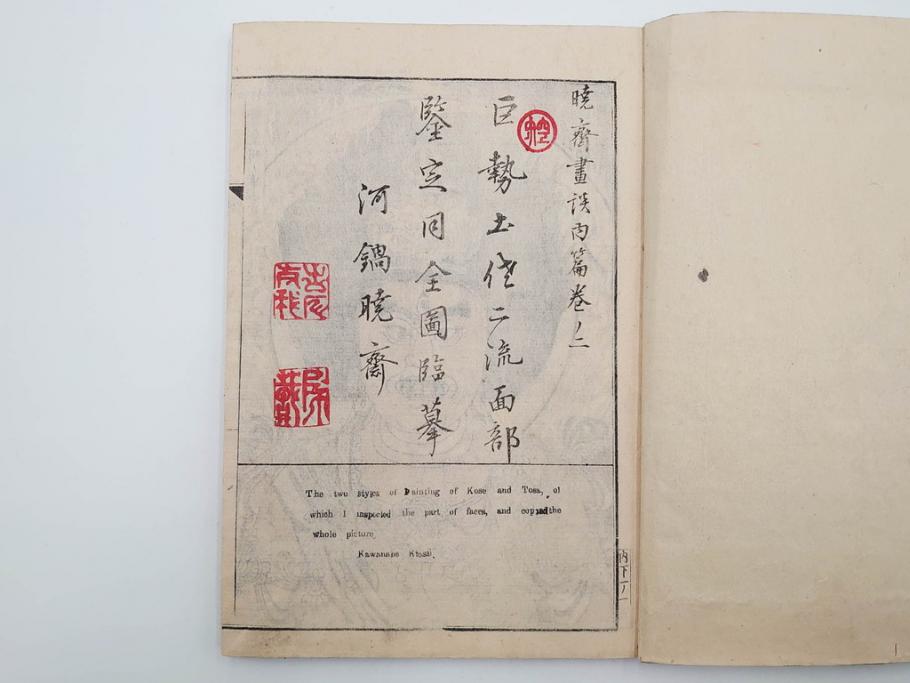 暁齋畫談内篇巻ノ二
巨勢土佐二流面部
鑒定同全圖臨摹
河鍋暁齋
The two styles of Painting of Kose and Tosa, of
which I inspected the part of faces, and copied the
whole picture.
Kawanabe Kiosai.
内下ノ一